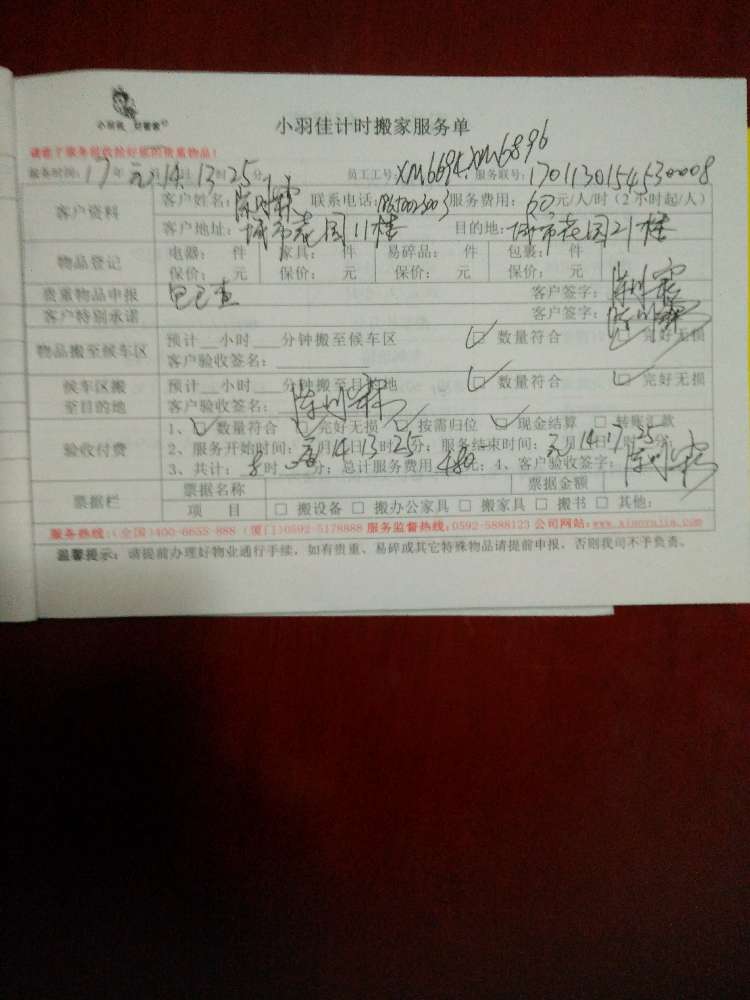 小羽佳 好管家
小羽佳计时搬家服务单
服务时间:17年 14日13时25分 员工工号:XM6694.XM6896 服务联号:170113015453
客户资料 客户姓名: 联系电话: 服务费用:60元/人/时(2小时起/人)
客户地址:城市花园11楼 目的地:城市花园21楼
物品登记 电器: 件 家具: 件 易碎品: 件 包裹: 件
保价: 元 保价: 元 保价: 元 保价: 元
贵重物品申报 已检查 客户签字:
客户特别承诺 客户签字:
物品搬至候车区 预计__小时___分钟搬至候车区 数量符合 完好无损
客户验收签名:
候车区搬至目的地 预计__小时___分钟搬至目的地 数量符合 完好无损
客户验收签名:
验收付费 1、数量符合 完好无损 按需归位 现金结算 转账汇款
2、服务开始时间: 月14日13时25分;服务结束时间: 月14日17时25分。
3、共计: 时 分;总计服务费用480元;4、客户验收签字:
票据栏 票据名称 票据金额
项目 搬设备 搬办公家具 搬家具 搬书 其他:
服务热线:(全国)400-6655-888 (厦门)0592-5178888 服务监督热线:0592-5888123 公司网站:www.xiaoyujia.com
温馨提示:请提前办理好物业通行手续,如有贵重、易碎或其它特殊物品请提前申报,否则我司不予负责。